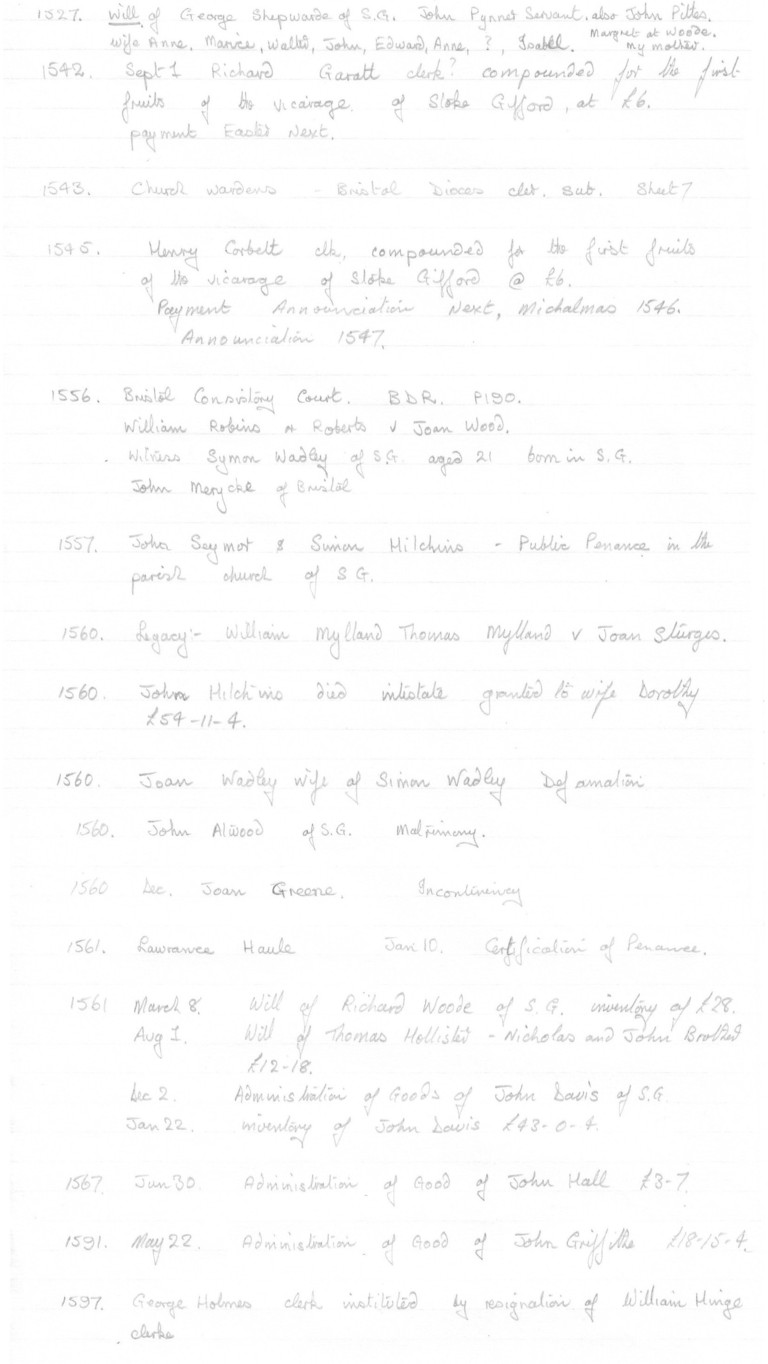 1527. Will of George Shepwarde of S.G. John Pynner Servant. also John Pittes.
wife Anne, Marice, Walter, John, Edward, Anne, ?, Isabel. Margret at Woode. my mother.
1542. Sept 1 Richard Garatt clerk? compounded for the first
fruits of the vicarage of Stoke Gifford, at £6.
payment Easter Next.
1543. Church Wardens - Bristol Dioces clet. sub. Sheet 7
1545. Henry Corbett clk, compounded for the first fruits
of the vicarage of Stoke Gifford @ £6.
Payment Announciation Next, Michalmas 1546.
Announciation 1547.
1556. Bristol Consistory Court. BDR. P190.
William Robins or Roberts v Joan Wood.
Witness Symon Wadley of S.G. aged 21 born in S.G.
John Merycke of Bristol
1557. John Seymor & Simon Hitchins - Public Penance in the
parish church of S G.
1560. Legacy:- William Mylland Thomas Mylland v Joan Sturges.
1560. John Hitchins died intestate granted to wife Dorothy
£54-11-4.
1560. Joan Wadley wife of Simon Wadley Defamation
1560. John Atwood of S.G. Matrimony.
1560 Dec. Joan Greene. Incontinency
1561. Lawrance Haule Jan 10. Certification of Penance.
1561 March 8. Will of Richard Woode of S.G. inventory of £28.
Aug 1. Will of Thomas Hollister - Nicholas and John Brother
£12-18.
Dec 2. Administration of Goods of John Davis of S.G
Jan 22. inventory of John Davis £43-0-4.
1567. Jun 30. Administration of Good of John Hall £3-7
1591. May 22. Administration of Good of John Griffithe £18-15-4.
1597. George Holmes clerk instituted by resignation of William Hinge
clerke